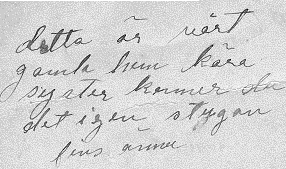 detta är vårt
gamla hem kära
syster kenner du
det igen stygan
fins ännu